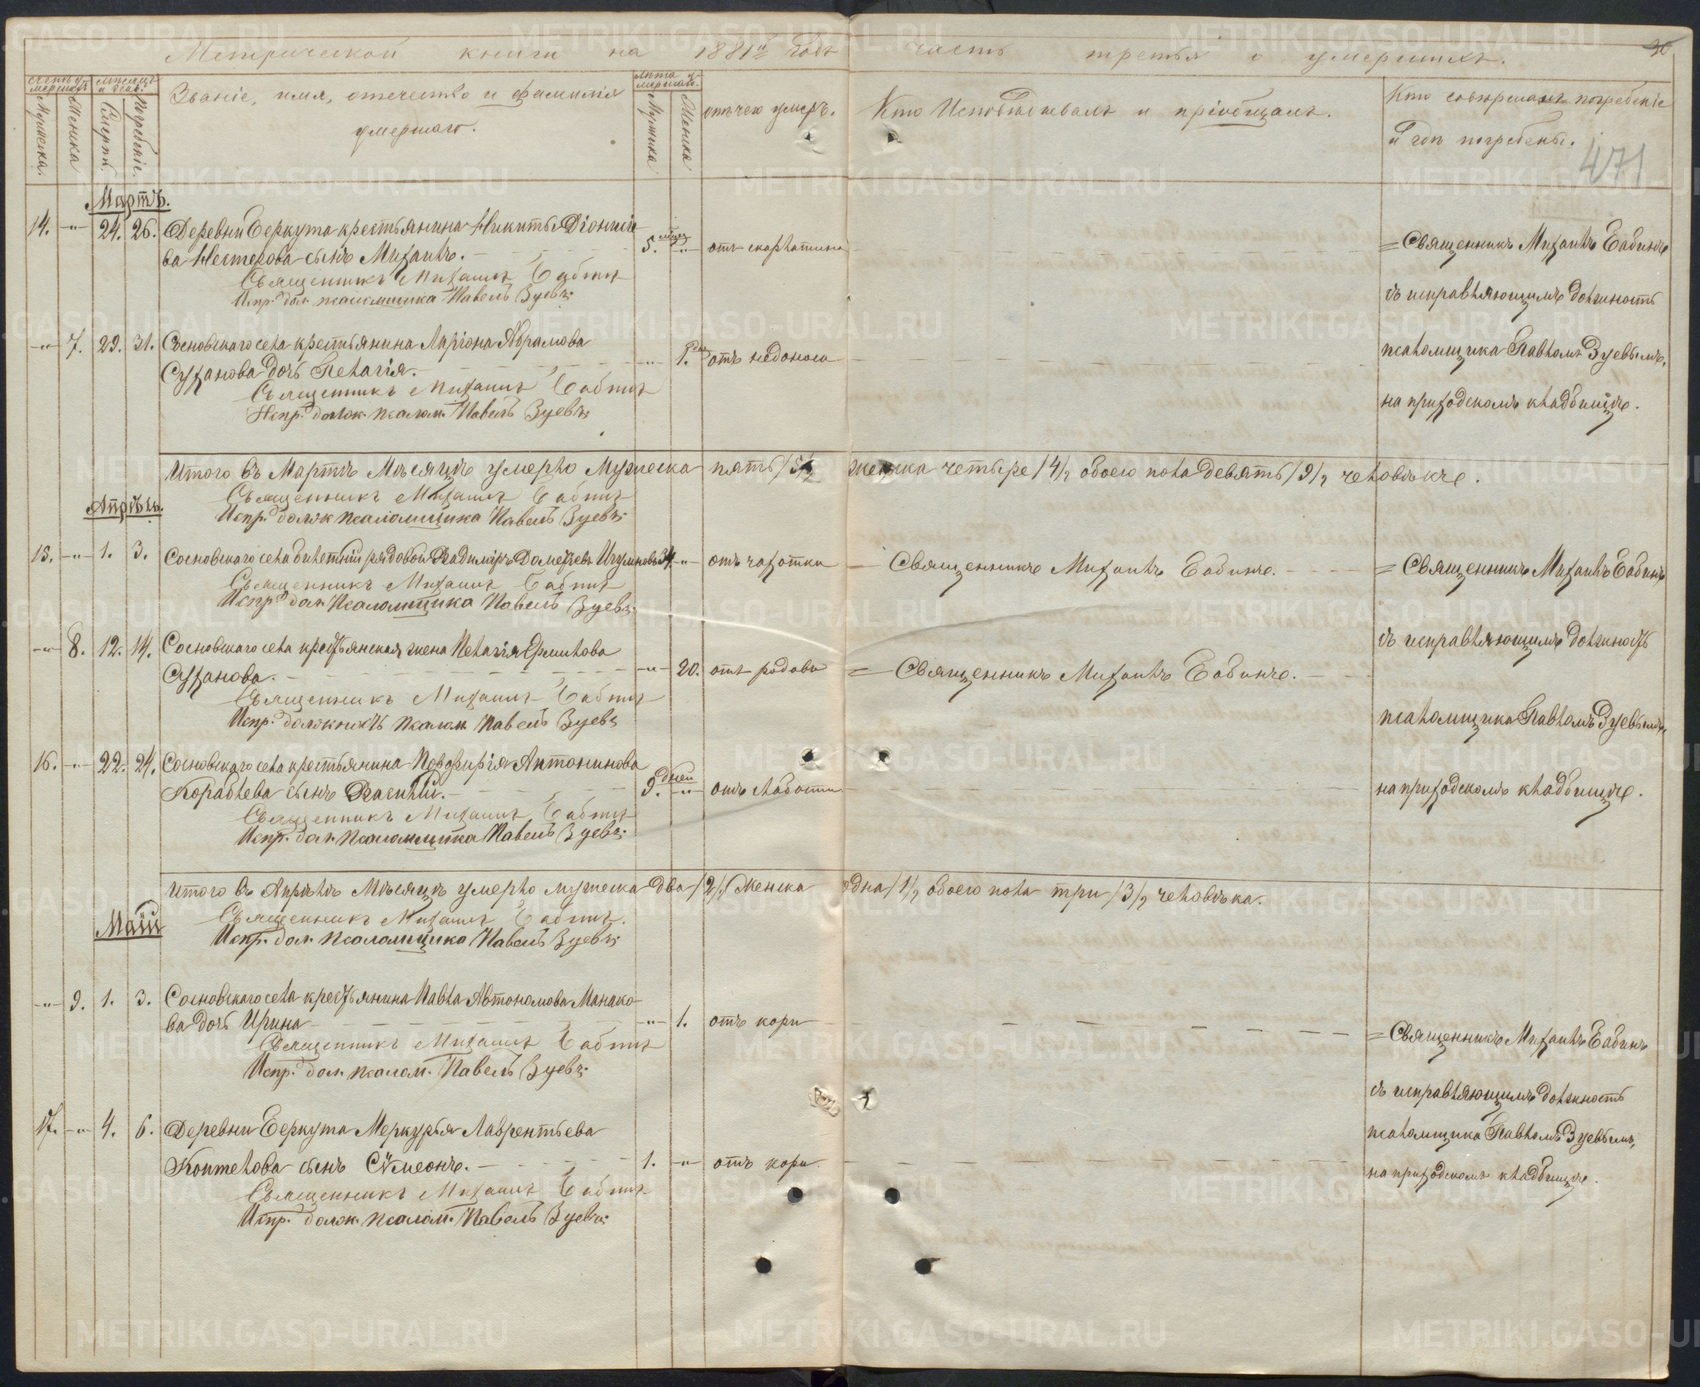 Метрической книги на 1881й годъ часть третья о умершихъ.
Мужеска. Женска Смерти Погребенiе.
Званiе, имя, отечество и фамилiя умершаго.
лѣта умершаго.
Мужика Женска
отъ чего умеръ.
Кто Исповѣдывалъ и прiобщалъ.
Кто совершалъ погребенiе
и гдѣ погребены.
471
Мартъ.
14. -"- 24. 26. Деревни Беркута крестьянина Никиты Дiонисiе
ва Нестерова сынъ Михаилъ. 5. мѣсяц -"- отъ скарлатины
Священникъ Михаилъ Бабинъ
Испр. дол. псаломщика Павелъ Зуевъ
= Священникъ Михаилъ Бабинъ
съ исправляющимъ должность
псаломщика Павломъ Зуевымъ,
на приходскомъ кладбищѣ.
-"- 7. 29. 31. Сосновскаго села крестьянина Ларiона Абрамова
Суханова дочь Пелагiя. -"- 1. отъ недоноса
Священникъ Михаилъ Бабинъ
Испр. долж. псалом. Павелъ Зуевъ
Итого въ Мартѣ Мѣсяцѣ умерло Мужеска пять /5/, женска четыре /4/, обоего пола девять /9/, человѣкъ.
Священникъ Михаилъ Бабинъ
Испр. долж псаломщика Павелъ Зуевъ
Апрѣль.
15. -"- 1. 3. Сосновскаго села билетный рядовой Владимiръ -"- отъ чахотки
— Священникъ Михаилъ Бабинъ.
Священникъ Михаилъ Бабинъ
Испр. дол. Псаломщика Павелъ Зуевъ
= Священникъ Михаилъ Бабинъ
съ исправляющимъ должность
псаломщика Павломъ Зуевымъ,
на приходскомъ кладбищѣ.
-"- 8. 12. 14. Сосновскаго села крестьянская жена Пелагiя Ермилова
Суханова. -"- 20. отъ родовъ = Священникъ Михаилъ Бабинъ.
Священникъ Михаилъ Бабинъ
Испр. должность псалом Павелъ Зуевъ
16. -"- 22. 24. Сосновскаго села крестьянина Порфирiя Антонинова
Кораблева сынъ Василiй. 9. дней -"- отъ слабости
Священникъ Михаилъ Бабинъ
Испр. дол. псаломщика Павелъ Зуевъ
Итого въ Апрѣлѣ Мѣсяцѣ умерло мужеска два /2/, Женска одна /1/, обоего пола три /3/, человѣка.
Священникъ Михаилъ Бабинъ.
Испр. дол. псаломщика Павелъ Зуевъ
Май
-"- 9. 1. 3. Сосновскаго села крестьянина Павла Автономова Манако-
ва дочь Ирина -"- 1. отъ кори
Священникъ Михаилъ Бабинъ
Испр. дол. псалом. Павелъ Зуевъ
= Священникъ Михаилъ Бабинъ
съ исправляющимъ должность
псаломщика Павломъ Зуевымъ,
на приходскомъ кладбищѣ.
17. -"- 4. 6. Деревни Беркута Меркурья Лаврентьева
Коптелова сынъ Сѵмеонъ. 1. -"- отъ кори.
Священникъ Михаилъ Бабинъ
Испр. долж. псалом. Павелъ Зуевъ
METRIKI.GASO-URAL.RU